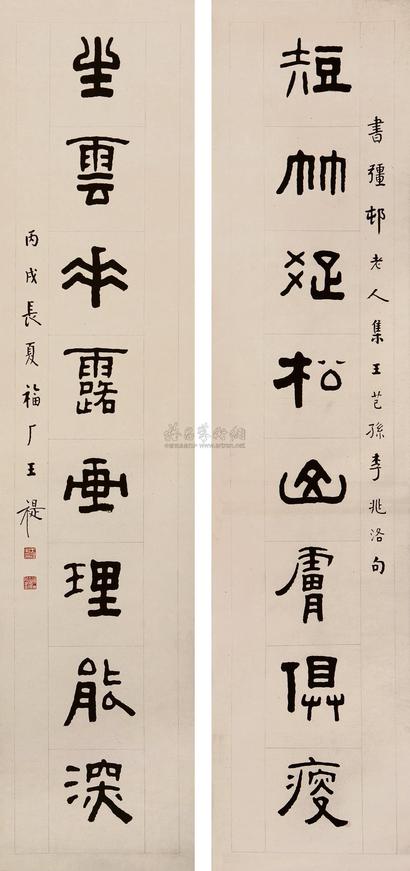 短竹疏松山膚俱瘦
書彊邨老人集王芑孫李兆洛句
坐雲垂露畫理能深
丙戌長夏福厂王禔